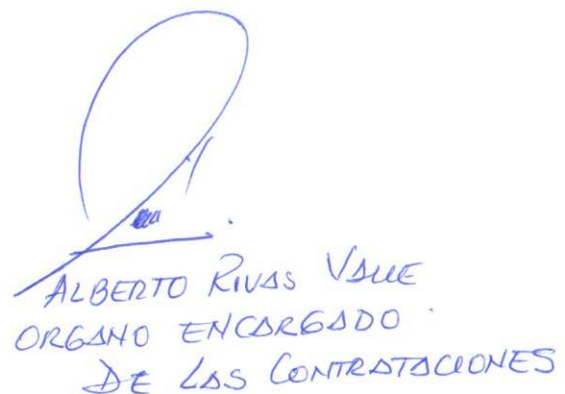 ALBERTO RIVAS VALLE
ORGANO ENCARGADO
DE LAS CONTRATACIONES